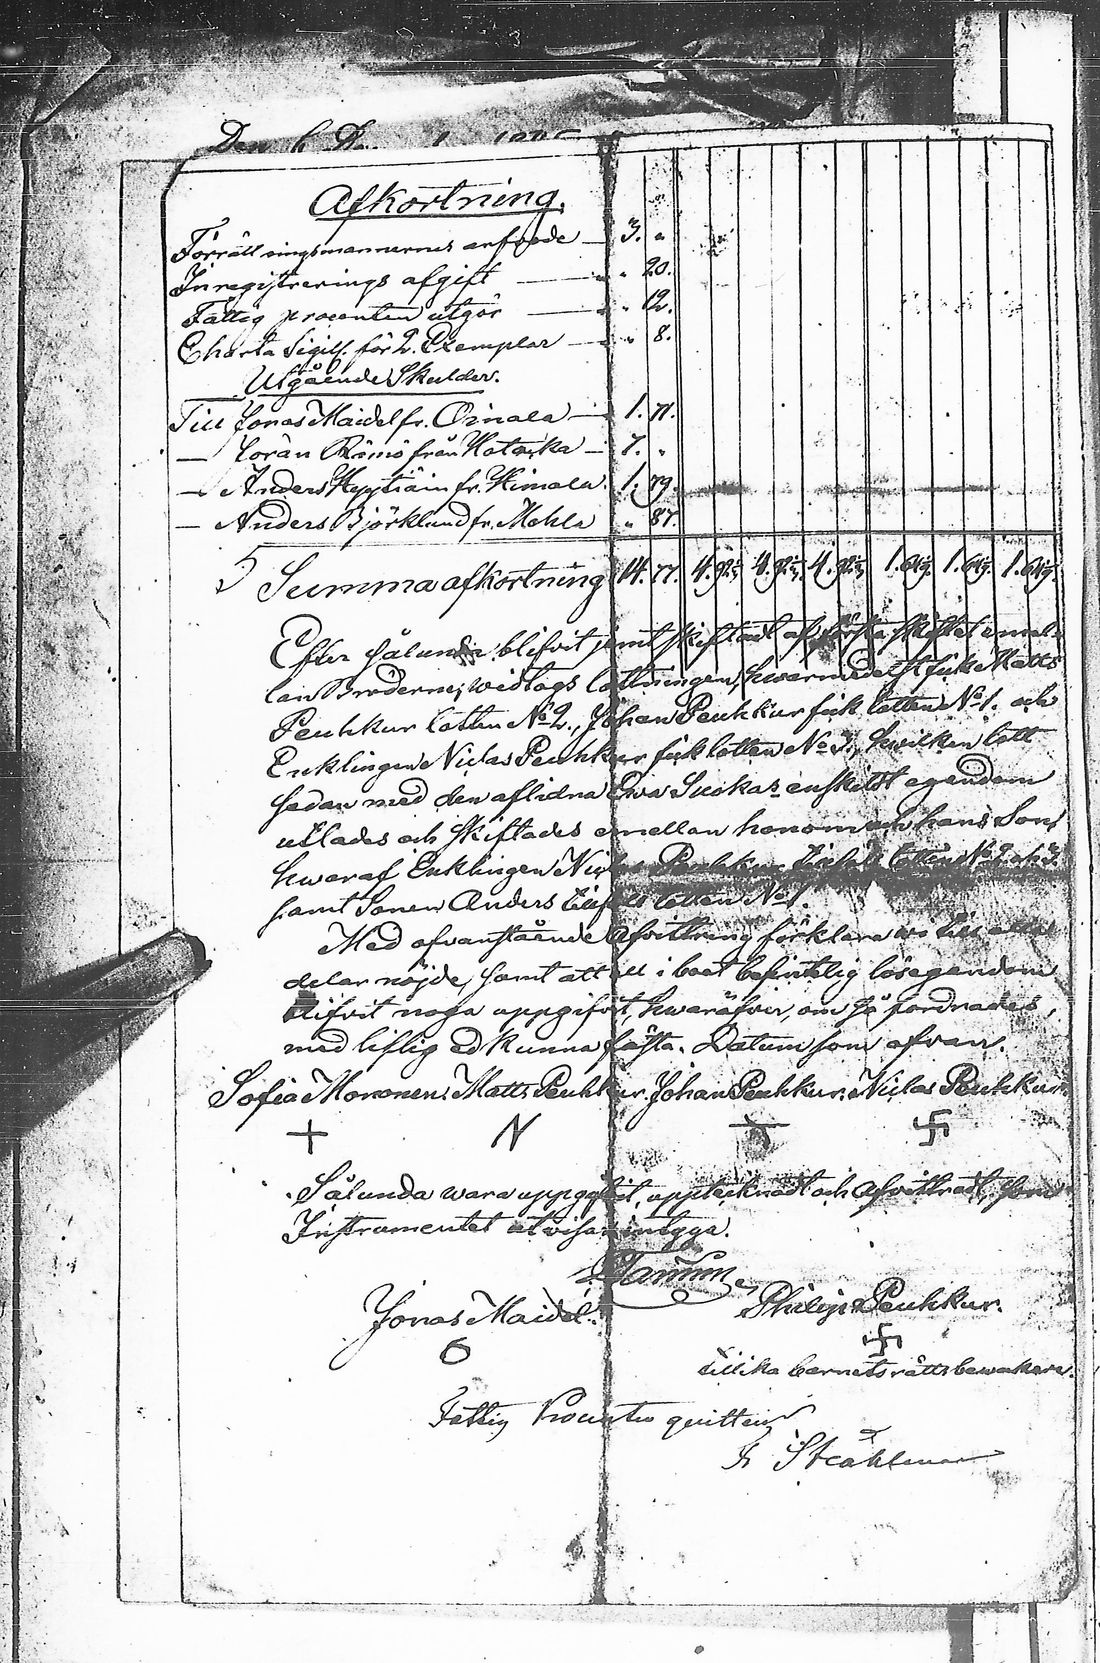 Den 6
Afkortning.
Förrättningsmannernes arfvode — 3. "
Inregistrerings afgift — " 20.
Fattig procenten utgör — " 12.
Charta Sigill. för 2. Exemplar — " 8.
Utgående Skulder.
Till Jonas Maidel fr. Oinala — 1. 71.
— från Hatakka — 7. "
— Anders Hyytiäin fr. Himala. 1. 79.
— Anders Björklund fr. Mohla " 87.
Summa afkortning 14. 77.
Efter sålunda blifvit jemt skiftadt af första skiftet emel-
lan Bröderne, widtogs lottningen, hwarmedelst fick Matts
Peuhkur lotten No 2., Johan Peuhkur fick lotten No 1. och
Enklingen Niclas Peuhkur fick lotten No 3., hwilken lott
sedan med den aflidna Ewa Suokas enskildt egendom
utlades och skiftades emellan honom och hans Son,
hwaraf Enklingen Niclas Peuhkur tillföll lotten No 2. och 3.
samt Sonen Anders tillföll lotten No 1.
Med ofvanstående Afvittring förklara wi till alla
delar nöjde, samt att all i boet befintelig lösegendom
blifvit noga uppgifvit, hwaröfver, om så fordrades,
med liflig ed kunna fästa. Datum som ofvan.
Sofia Mononen. Matts Peuhkur. Johan Peuhkur. Niclas Peuhkur.
Sålunda wara uppgifvit, upptecknadt och afvittradt, som
Instrumentet utvisar intyga.
Jonas Maidel. Philip Peuhkur.
tillika barnets rättsbewakare.
Fattig Procenten quitteras
Stråhlman